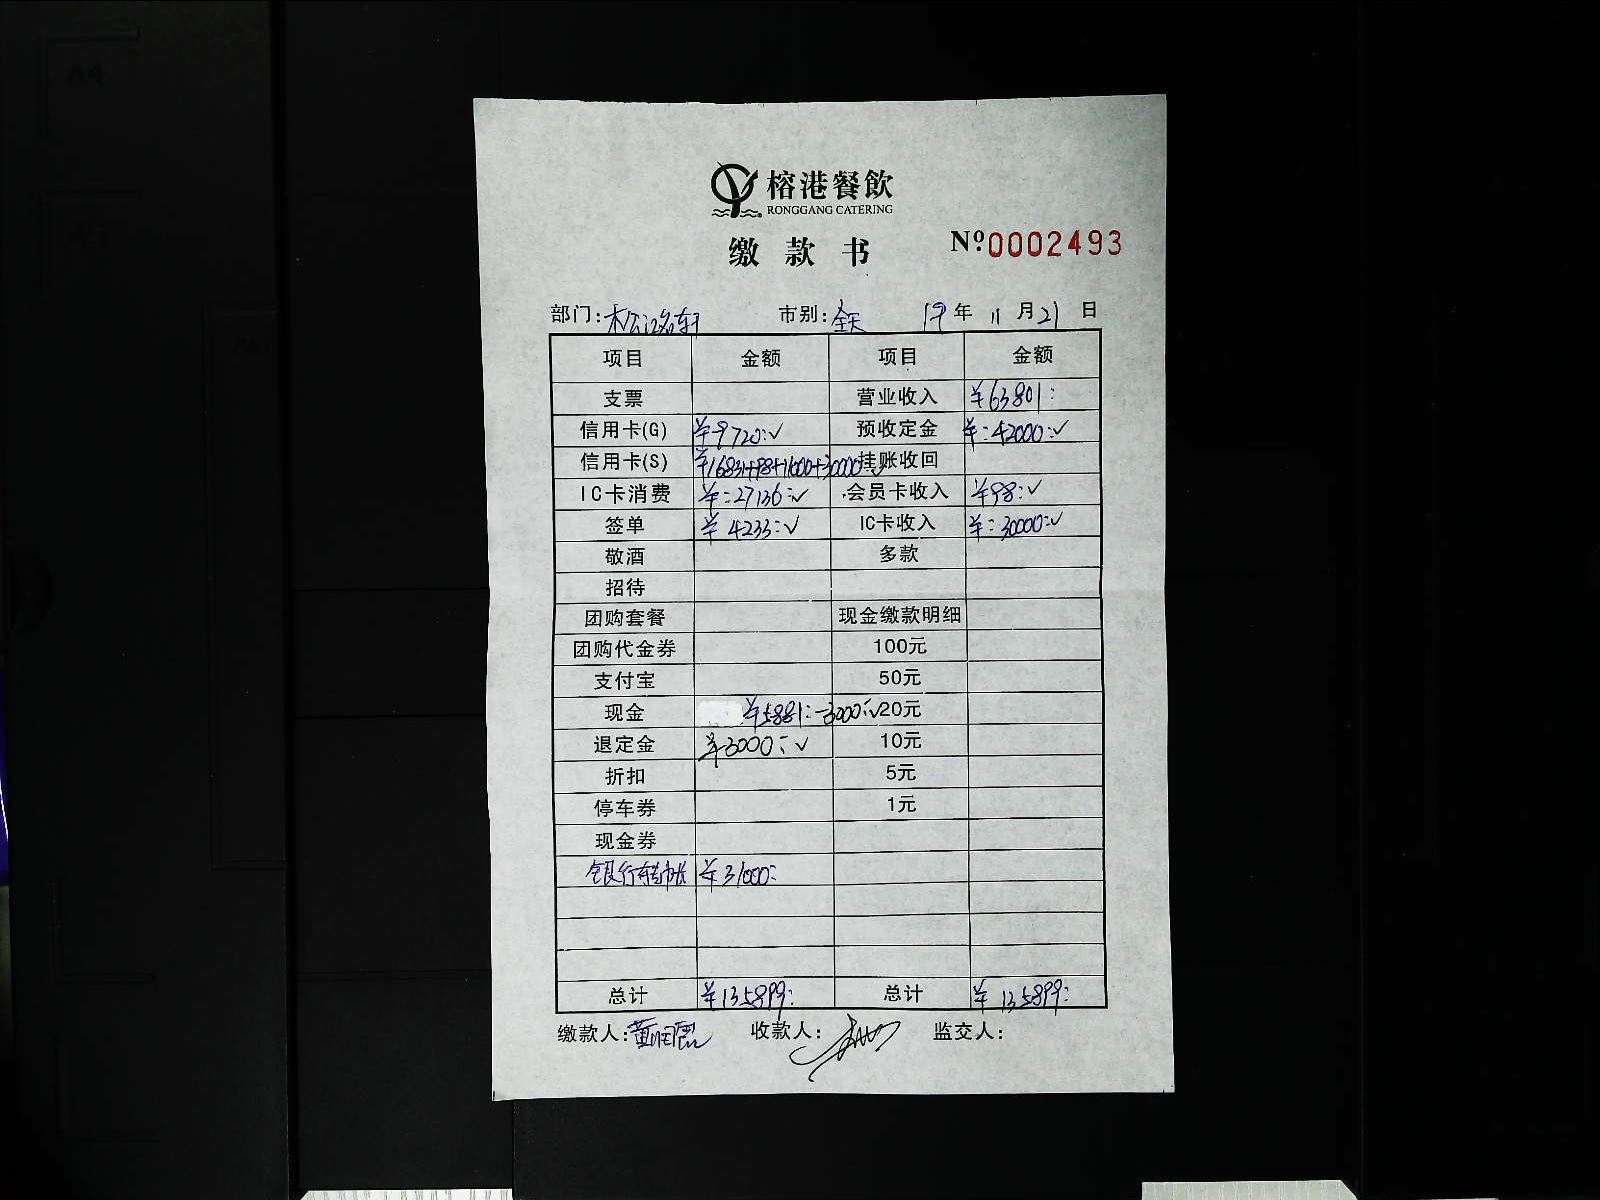 榕港餐飲
RONGGANG CATERING
缴款书
Nº 0002493
部门:松江名轩 市别:全天 19年11月21日
项目 金额 项目 金额
支票 营业收入 ¥63801:
信用卡(G) ¥9720:✓ 预收定金 ¥:42000:✓
信用卡(S) ¥16831+98+11000+30000✓ 挂账收回
IC卡消费 ¥:27136:✓ 会员卡收入 ¥98:✓
签单 ¥4233:✓ IC卡收入 ¥:30000:✓
敬酒 多款
招待
团购套餐 现金缴款明细
团购代金券 100元
支付宝 50元
现金 ¥5881:-3000:✓ 20元
退定金 ¥3000:✓ 10元
折扣 5元
停车券 1元
现金券
银行转帐 ¥31000:
总计 ¥135899: 总计 ¥135899:
缴款人: 收款人: 监交人: